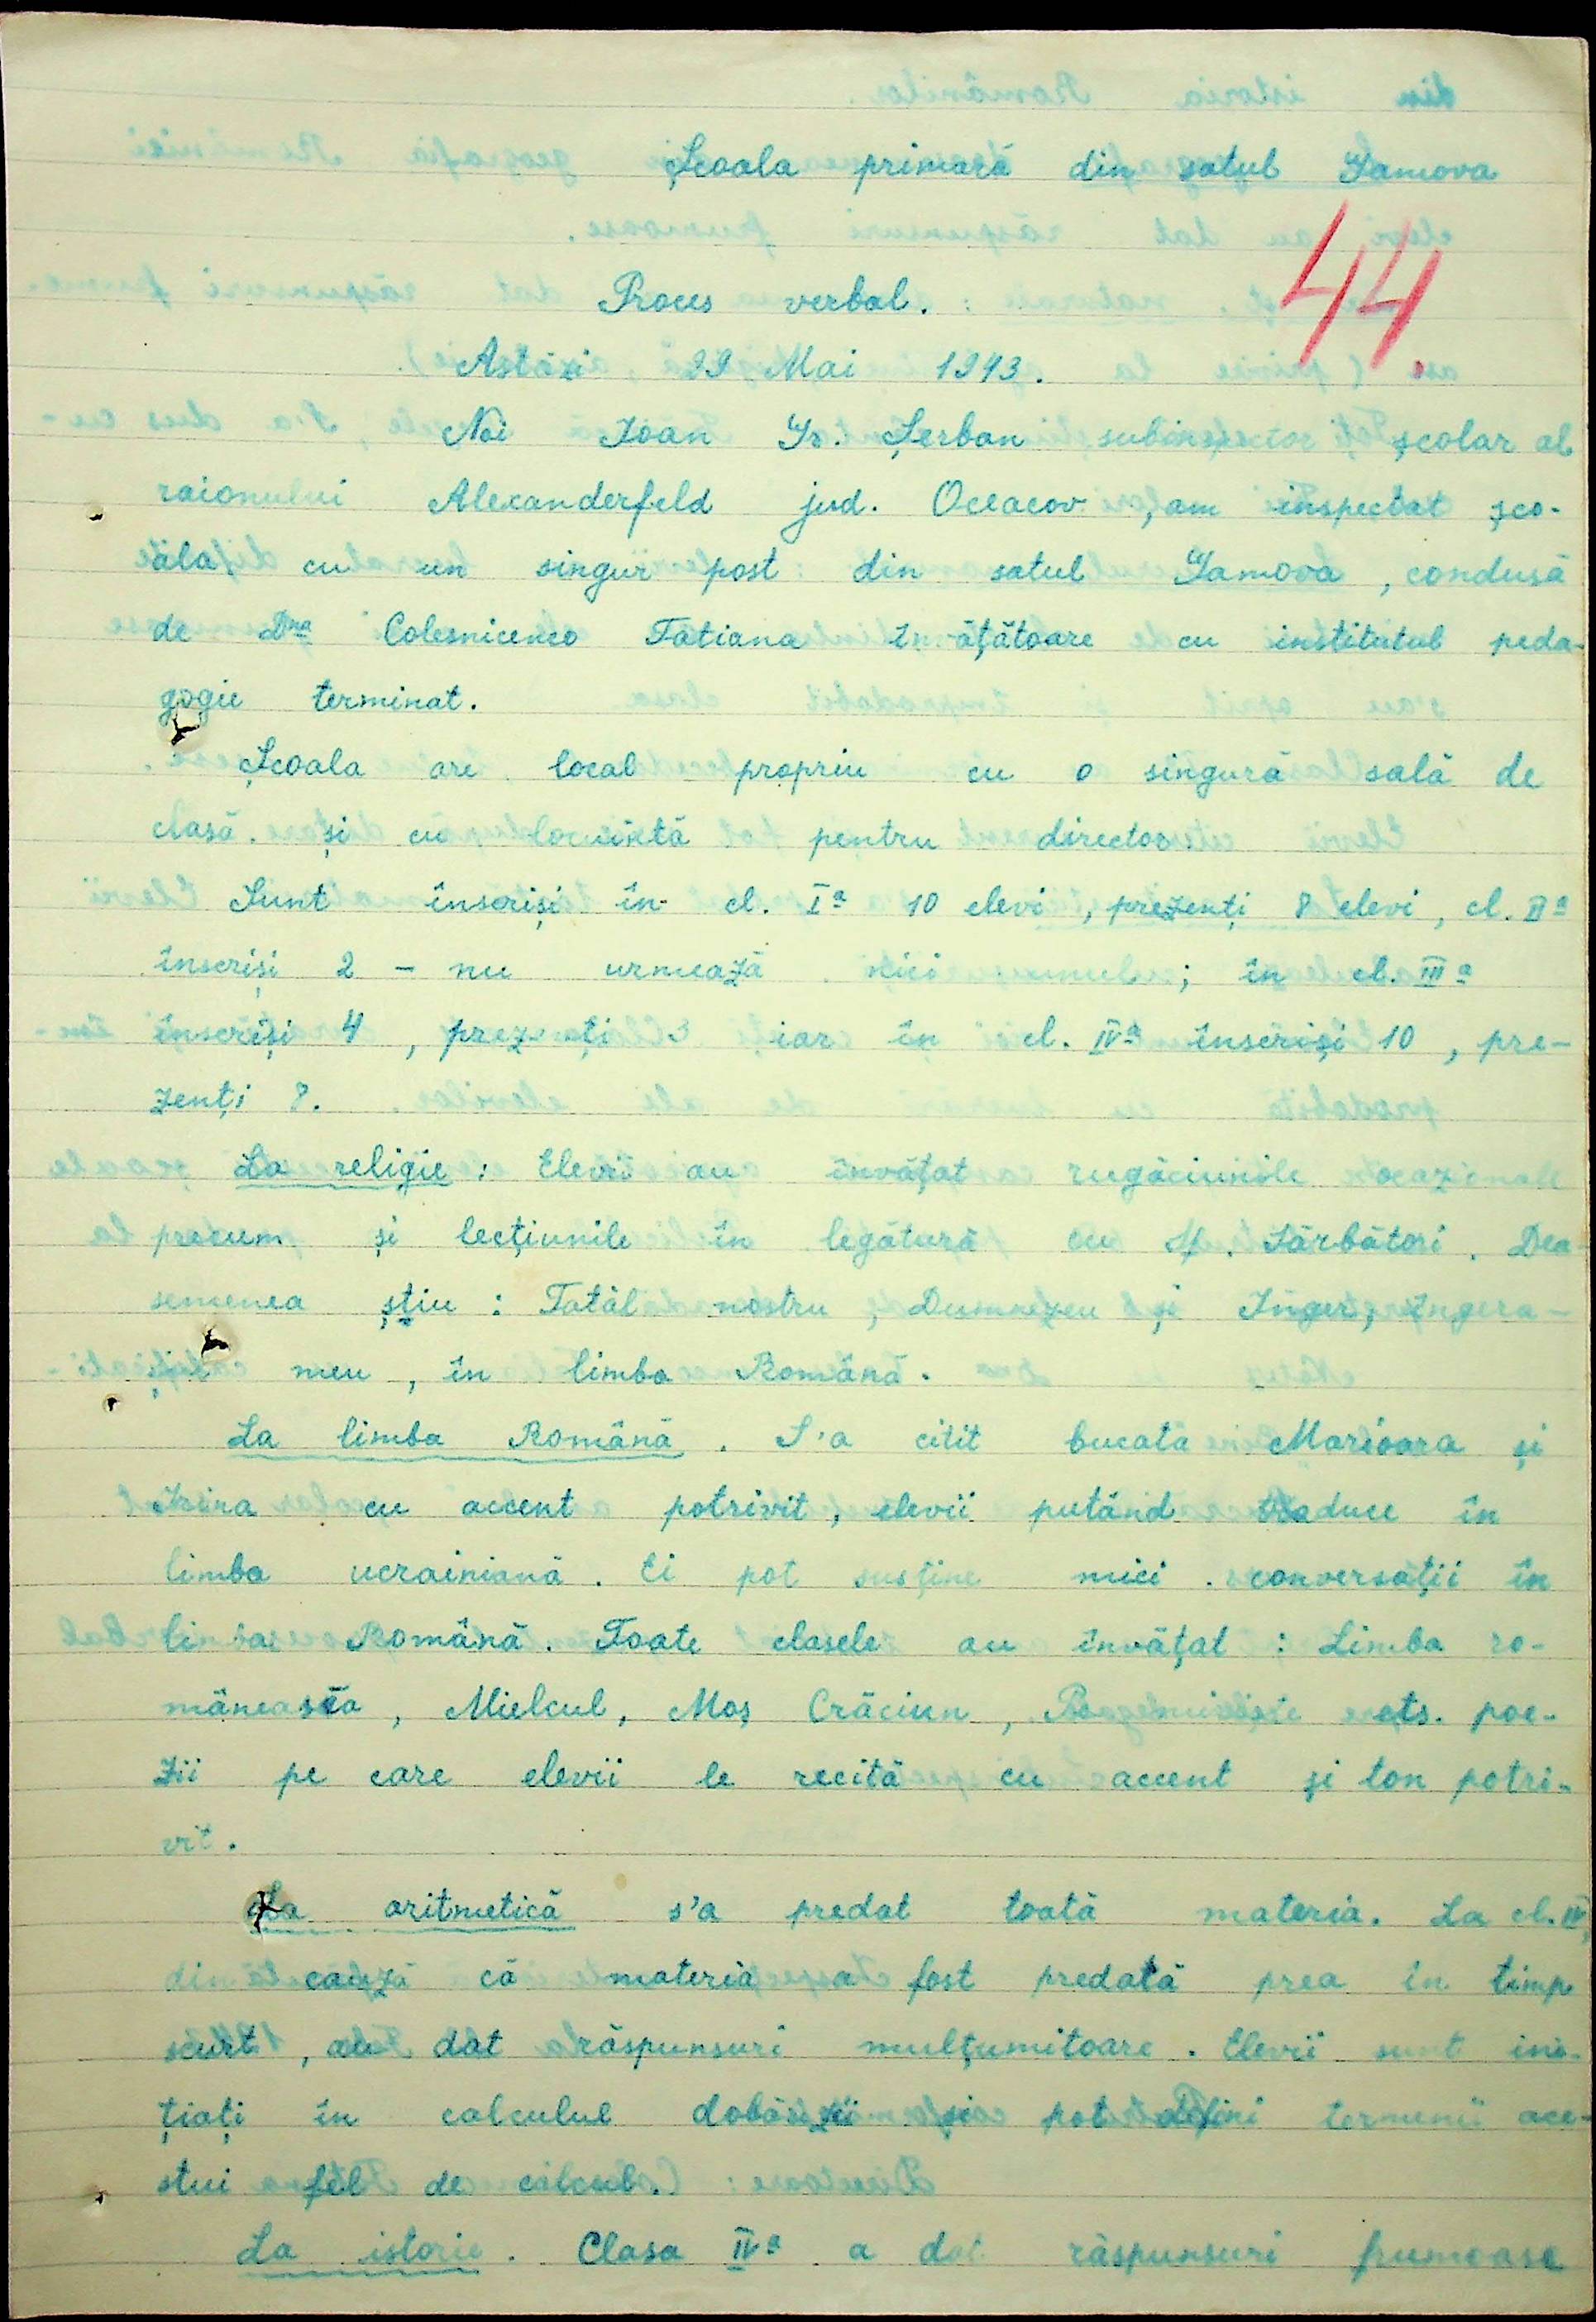 Școala primară din satul Yamova
44
Proces verbal.
Astăzi 29 Mai 1943.
Noi Ioan Gr. Șerban subinspector școlar al
raionului Alexanderfeld jud. Oceacov, am inspectat șco-
ala cu un singur post din satul Yamova, condusă
de Dna Colesnicenco Tatiana învățătoare cu institutul peda-
gogic terminat.
Școala are local propriu cu o singură sală de
clasă. și cu locuință pentru director
Sunt înscriși în cl. Ia 10 elevi, prezenți 8 elevi, cl. IIa
înscriși 2 - nu urmează nici; în cl. IIIa
înscriși 4, prezenți 3 iar în cl. IVa înscriși 10, pre-
zenți 8.
La religie: Elevii au învățat rugăciunile ocazionale
precum și lecțiunile în legătură cu Sf. Sărbători. Dea-
semenea știu: Tatăl nostru, Dumnezeu și Înger, îngera-
șul meu, în limba Română.
La limba Română. S'a citit bucata Marioara și
Irina cu accent potrivit, elevii putând traduce în
limba ucrainiană. Ei pot susține mici conversații în
limba Română. Toate clasele au învățat: Limba ro-
mânească, Mielcul, Moș Crăciun, ets. poe-
zii pe care elevii le recită cu accent și ton potri-
vit.
La aritmetică s'a predat toată materia. La cl. IV,
din cauză că materia a fost predată prea în timp
scurt, au dat răspunsuri mulțumitoare. Elevii sunt ini-
țiați în calculul dobânzii și pot defini termenii ace-
stui fel de calcul.
La istorie. Clasa IVa a dat răspunsuri frumoase